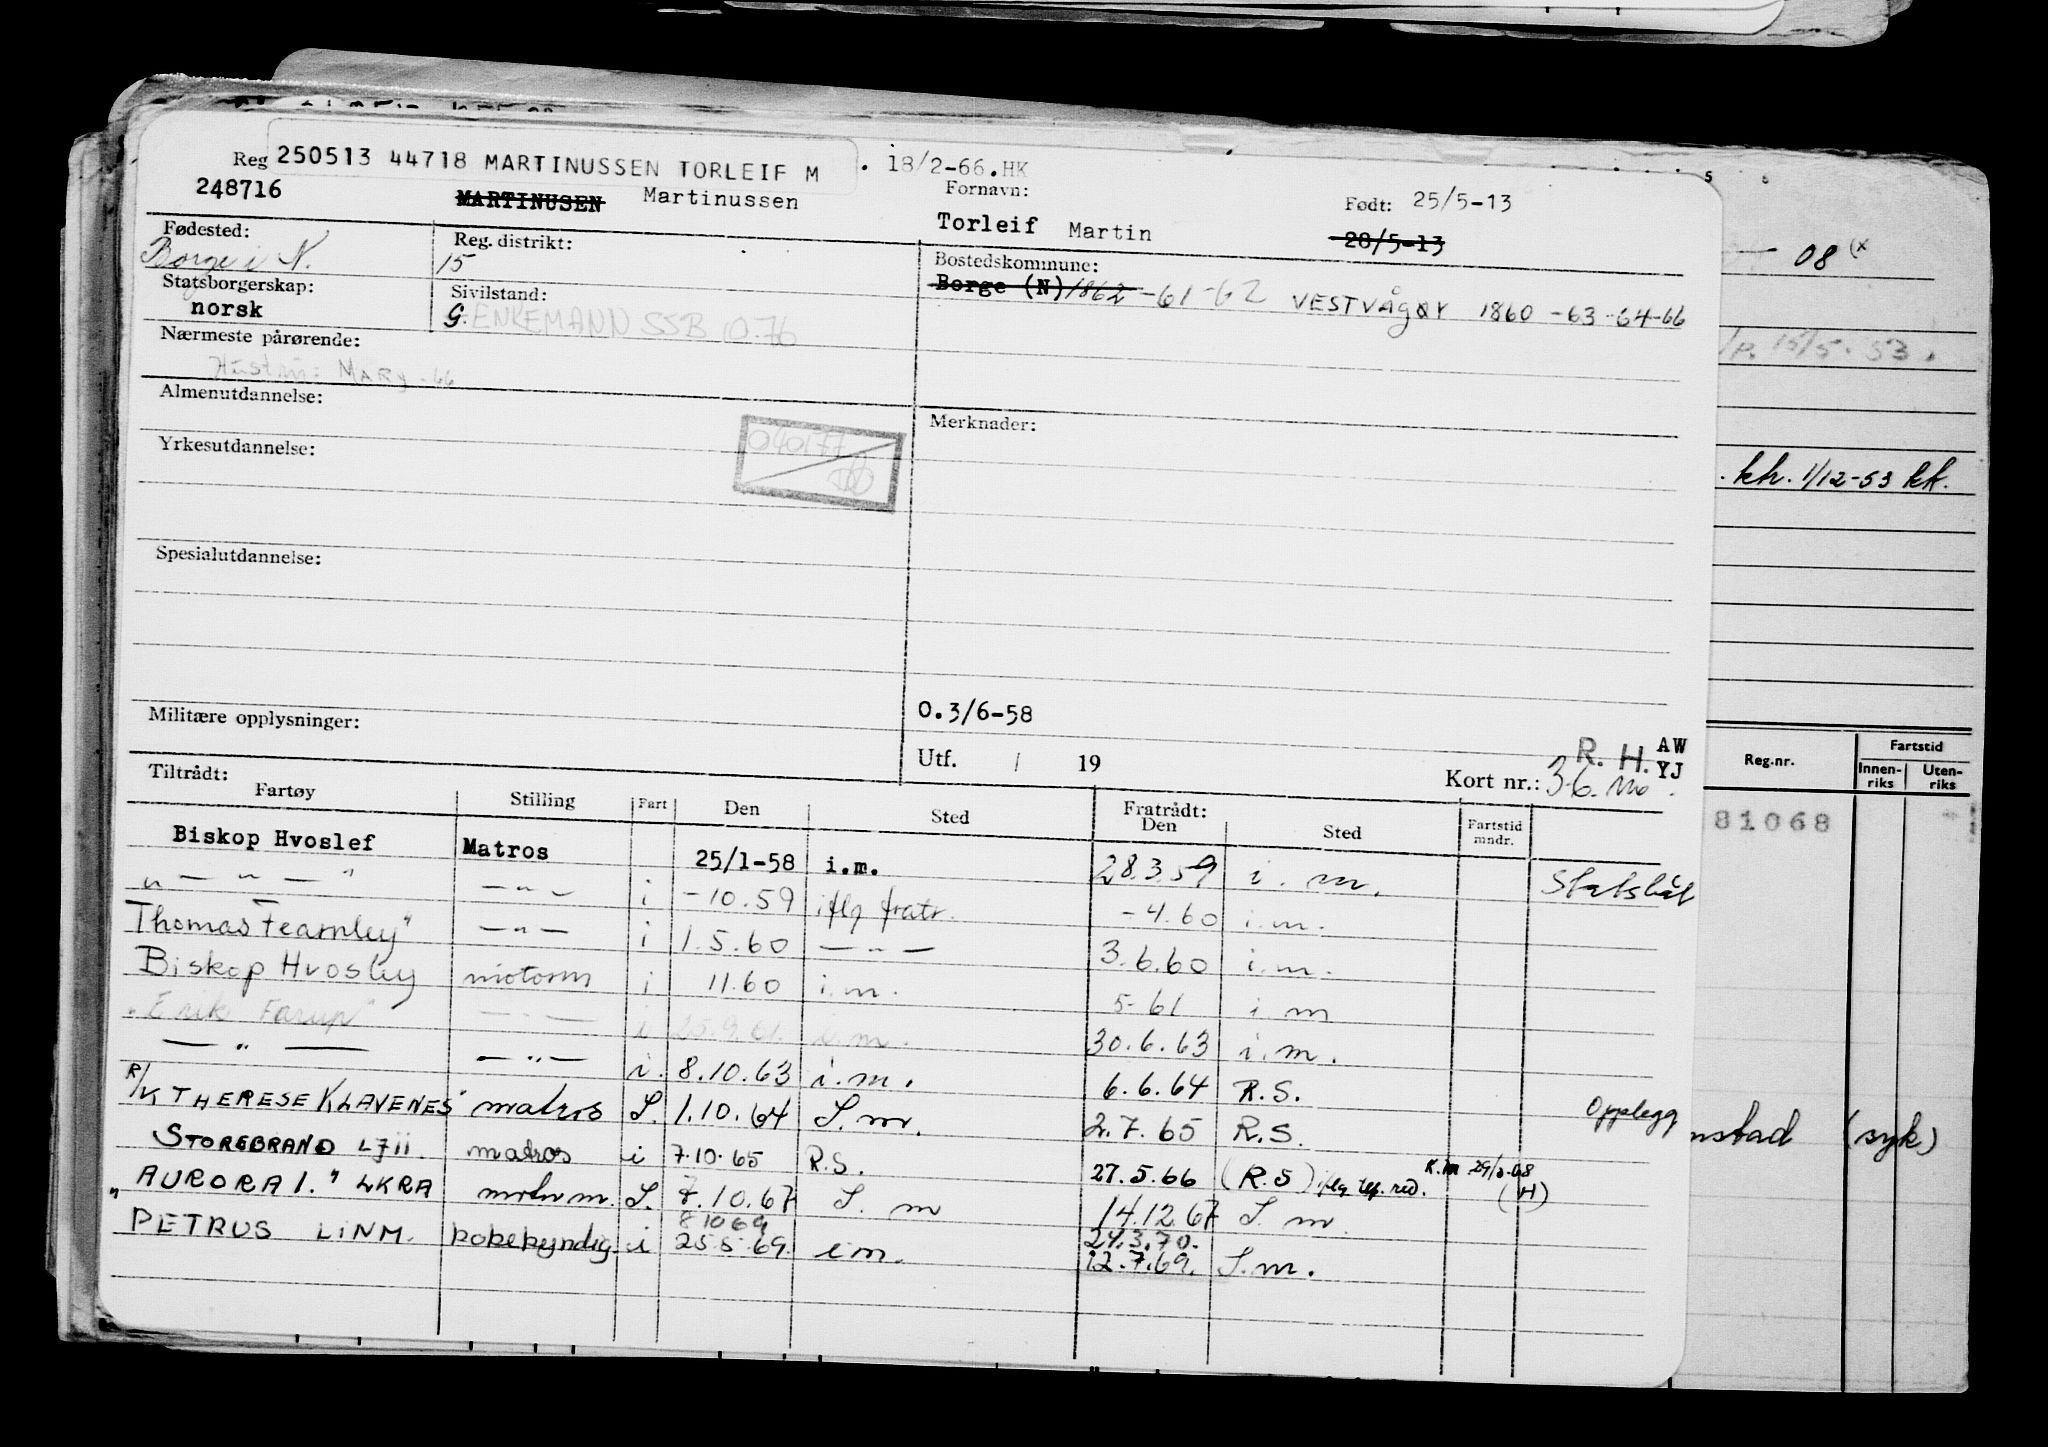 Reg 250513 44718 MARTINUSSEN TORLEIF M . 18/2-66.HK
248716 MARTINUSEN Martinussen
Fornavn:
Torleif Martin
Født: 25/5-13
28/5-13
Fødested:
Borge i N.
Reg. distrikt:
15
Bostedskommune:
Borge (N) 1862 -61-62 VESTVÅGØY 1860 -63-64-66
Statsborgerskap:
norsk
Sivilstand:
G. ENKEMANN SSB 10.76
Nærmeste pårørende:
Hustru: MARY -66
Almenutdannelse:
040177
Merknader:
Yrkesutdannelse:
Spesialutdannelse:
Militære opplysninger:
O.3/6-58
Utf. / 19
R. H. AW
YJ
Kort nr.: 36. mo.
Tiltrådt:
Fartøy Stilling Fart Den Sted
Fratrådt:
Den Sted Fartstid mndr.
Biskop Hvoslef Matros 25/1-58 i.m. 28.3.59 i. m. Statsbåt
" — " — " — " — i -10.59 iflg fratr. -4.60 i.m.
Thomas Fearnley" — " — i 1.5.60 — " — 3.6.60 i.m.
Biskop Hvosley motorm i 11.60 i.m. 5-61 i m
"Erik Farup" — " — i 25.9.61. i.m. 30.6.63 i.m.
— " — — " — i. 8.10.63 i.m. 6.6.64 R.S.
R/K THERESE KLAVENES" matros S. 1.10.64 S.m. 2.7.65 R.S. Opplegg
STOREBRAND LJII. matros i 7.10.65 R.S. 27.5.66 (R.S) iflg
AURORA 1." LKRA motorm. S. 7.10.67 S. m 14.12.67 S. m.
8 10 69 24.3.70.
"PETRUS LINM. kokekyndig i 25.5.69. i m. 12.7.69. S.m.
08 (x
15/5.53.
. kh. 1/12-53 kk.
Reg.nr. Fartstid
Innen-riks Uten-riks
81068
nstad (syk)